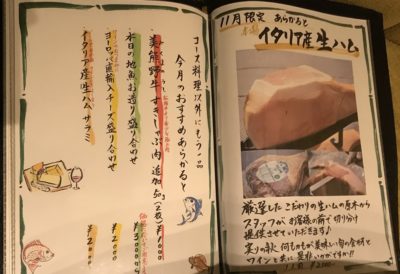 11月限定 あらかると
イタリア産生ハム
厳選したこだわりの生ハムの原木から
スタッフがお客様の前で切り分け
提供させていただきます♪
実りの秋 何もかもが美味しい旬の食材と
ワインと共に是非いかがですか!!
コース料理以外にもう一品
今月のおすすめあらかると
美熊野牛すきしゃぶ肉 追加50g(2枚) ¥1000
本日の地魚お造り盛り合わせ ¥3000
ヨーロッパ直輸入チーズ盛り合わせ ¥2000
イタリア産生ハム、サラミ ¥2000